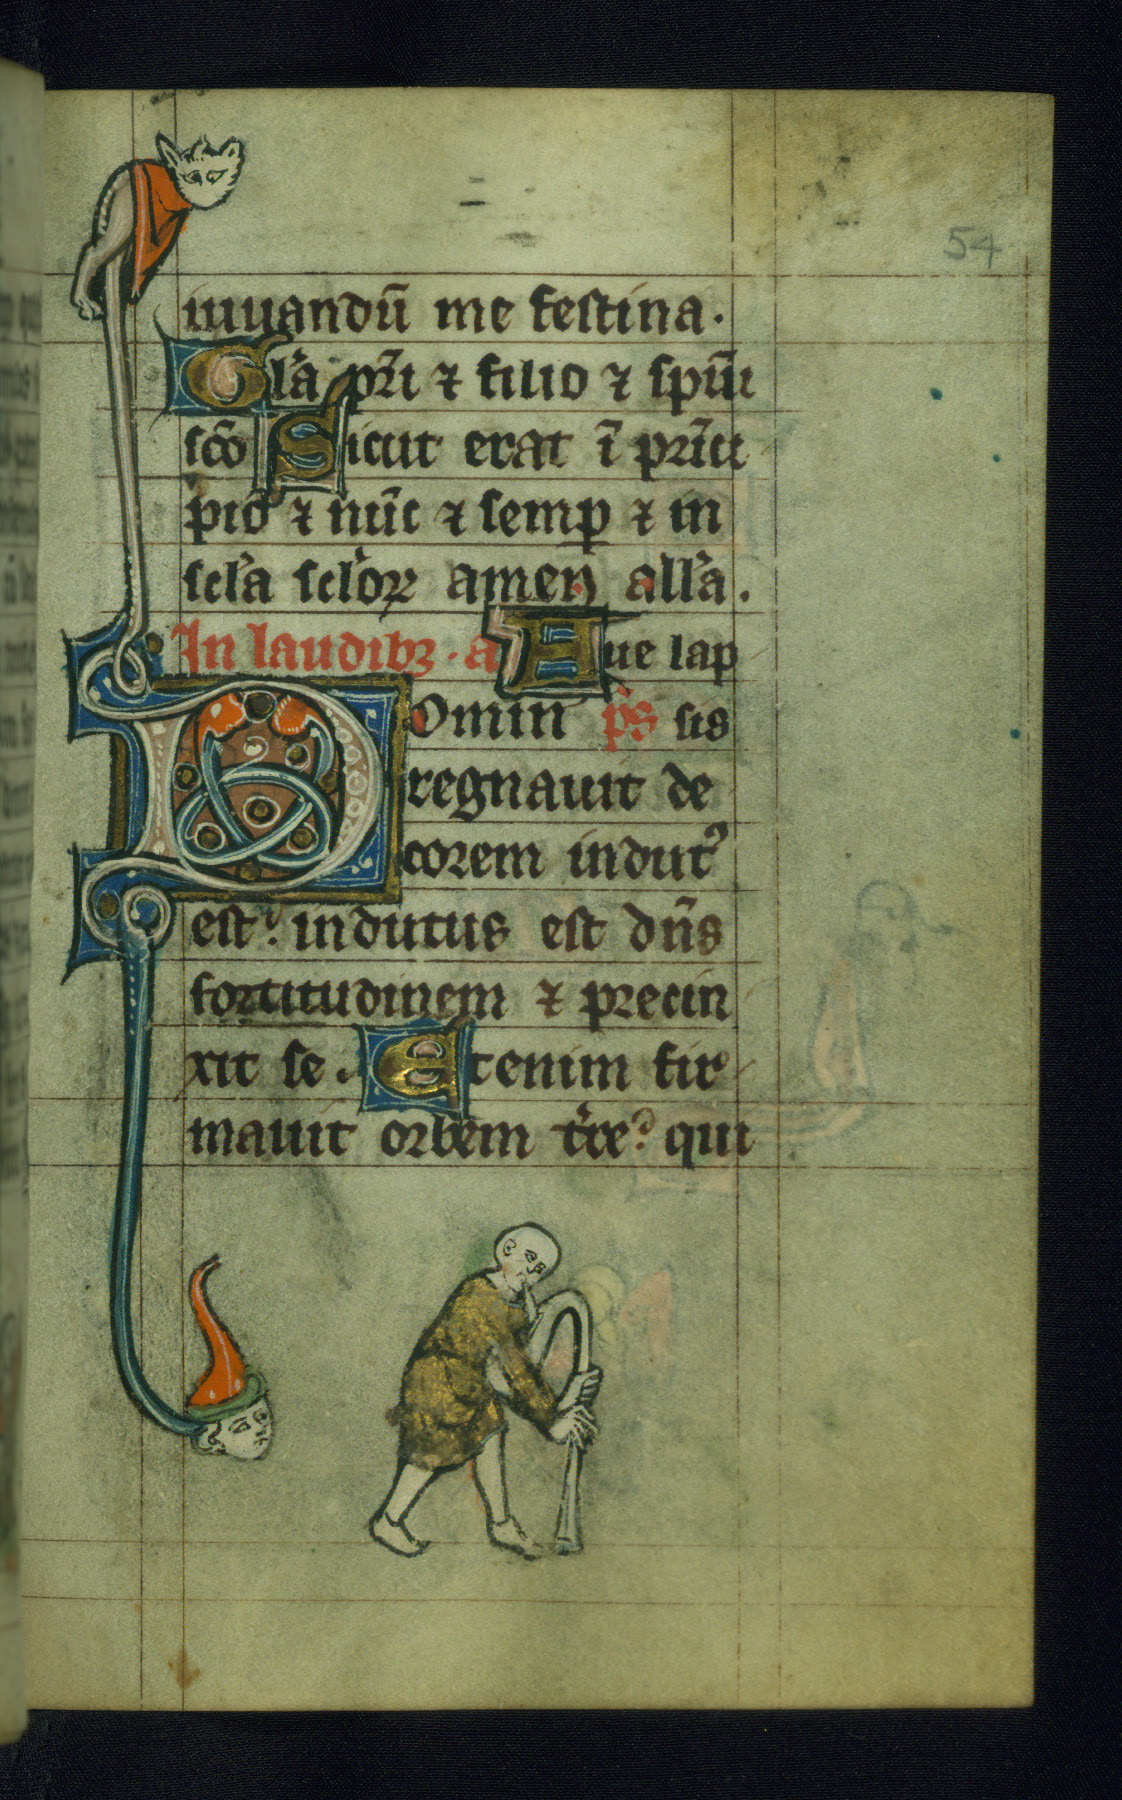 54
iuuandū me festina.
Glā pr̄i ⁊ filio ⁊ spiūi
scō Sicut erat ī prīci
pio ⁊ nūc ⁊ semꝑ ⁊ in
scl̄a scl̄oꝝ amen all̄a.
In laudibꝫ. a Aue lap
Domin p̄s sis
regnauit de
corem indutꝰ
est: indutus est dn̄s
fortitudinem ⁊ precin
xit se. Etenim fir
mauit orbem tr̄re: qui